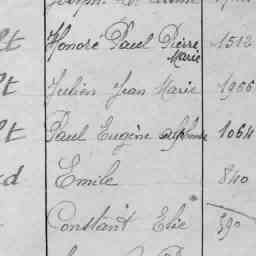 lt Honoré Paul Pierre 1512
Marie
lt Julien Jean Marie 1966
lt Paul Eugène Alphonse 1064
rd Emile 840
Constant Elie 390